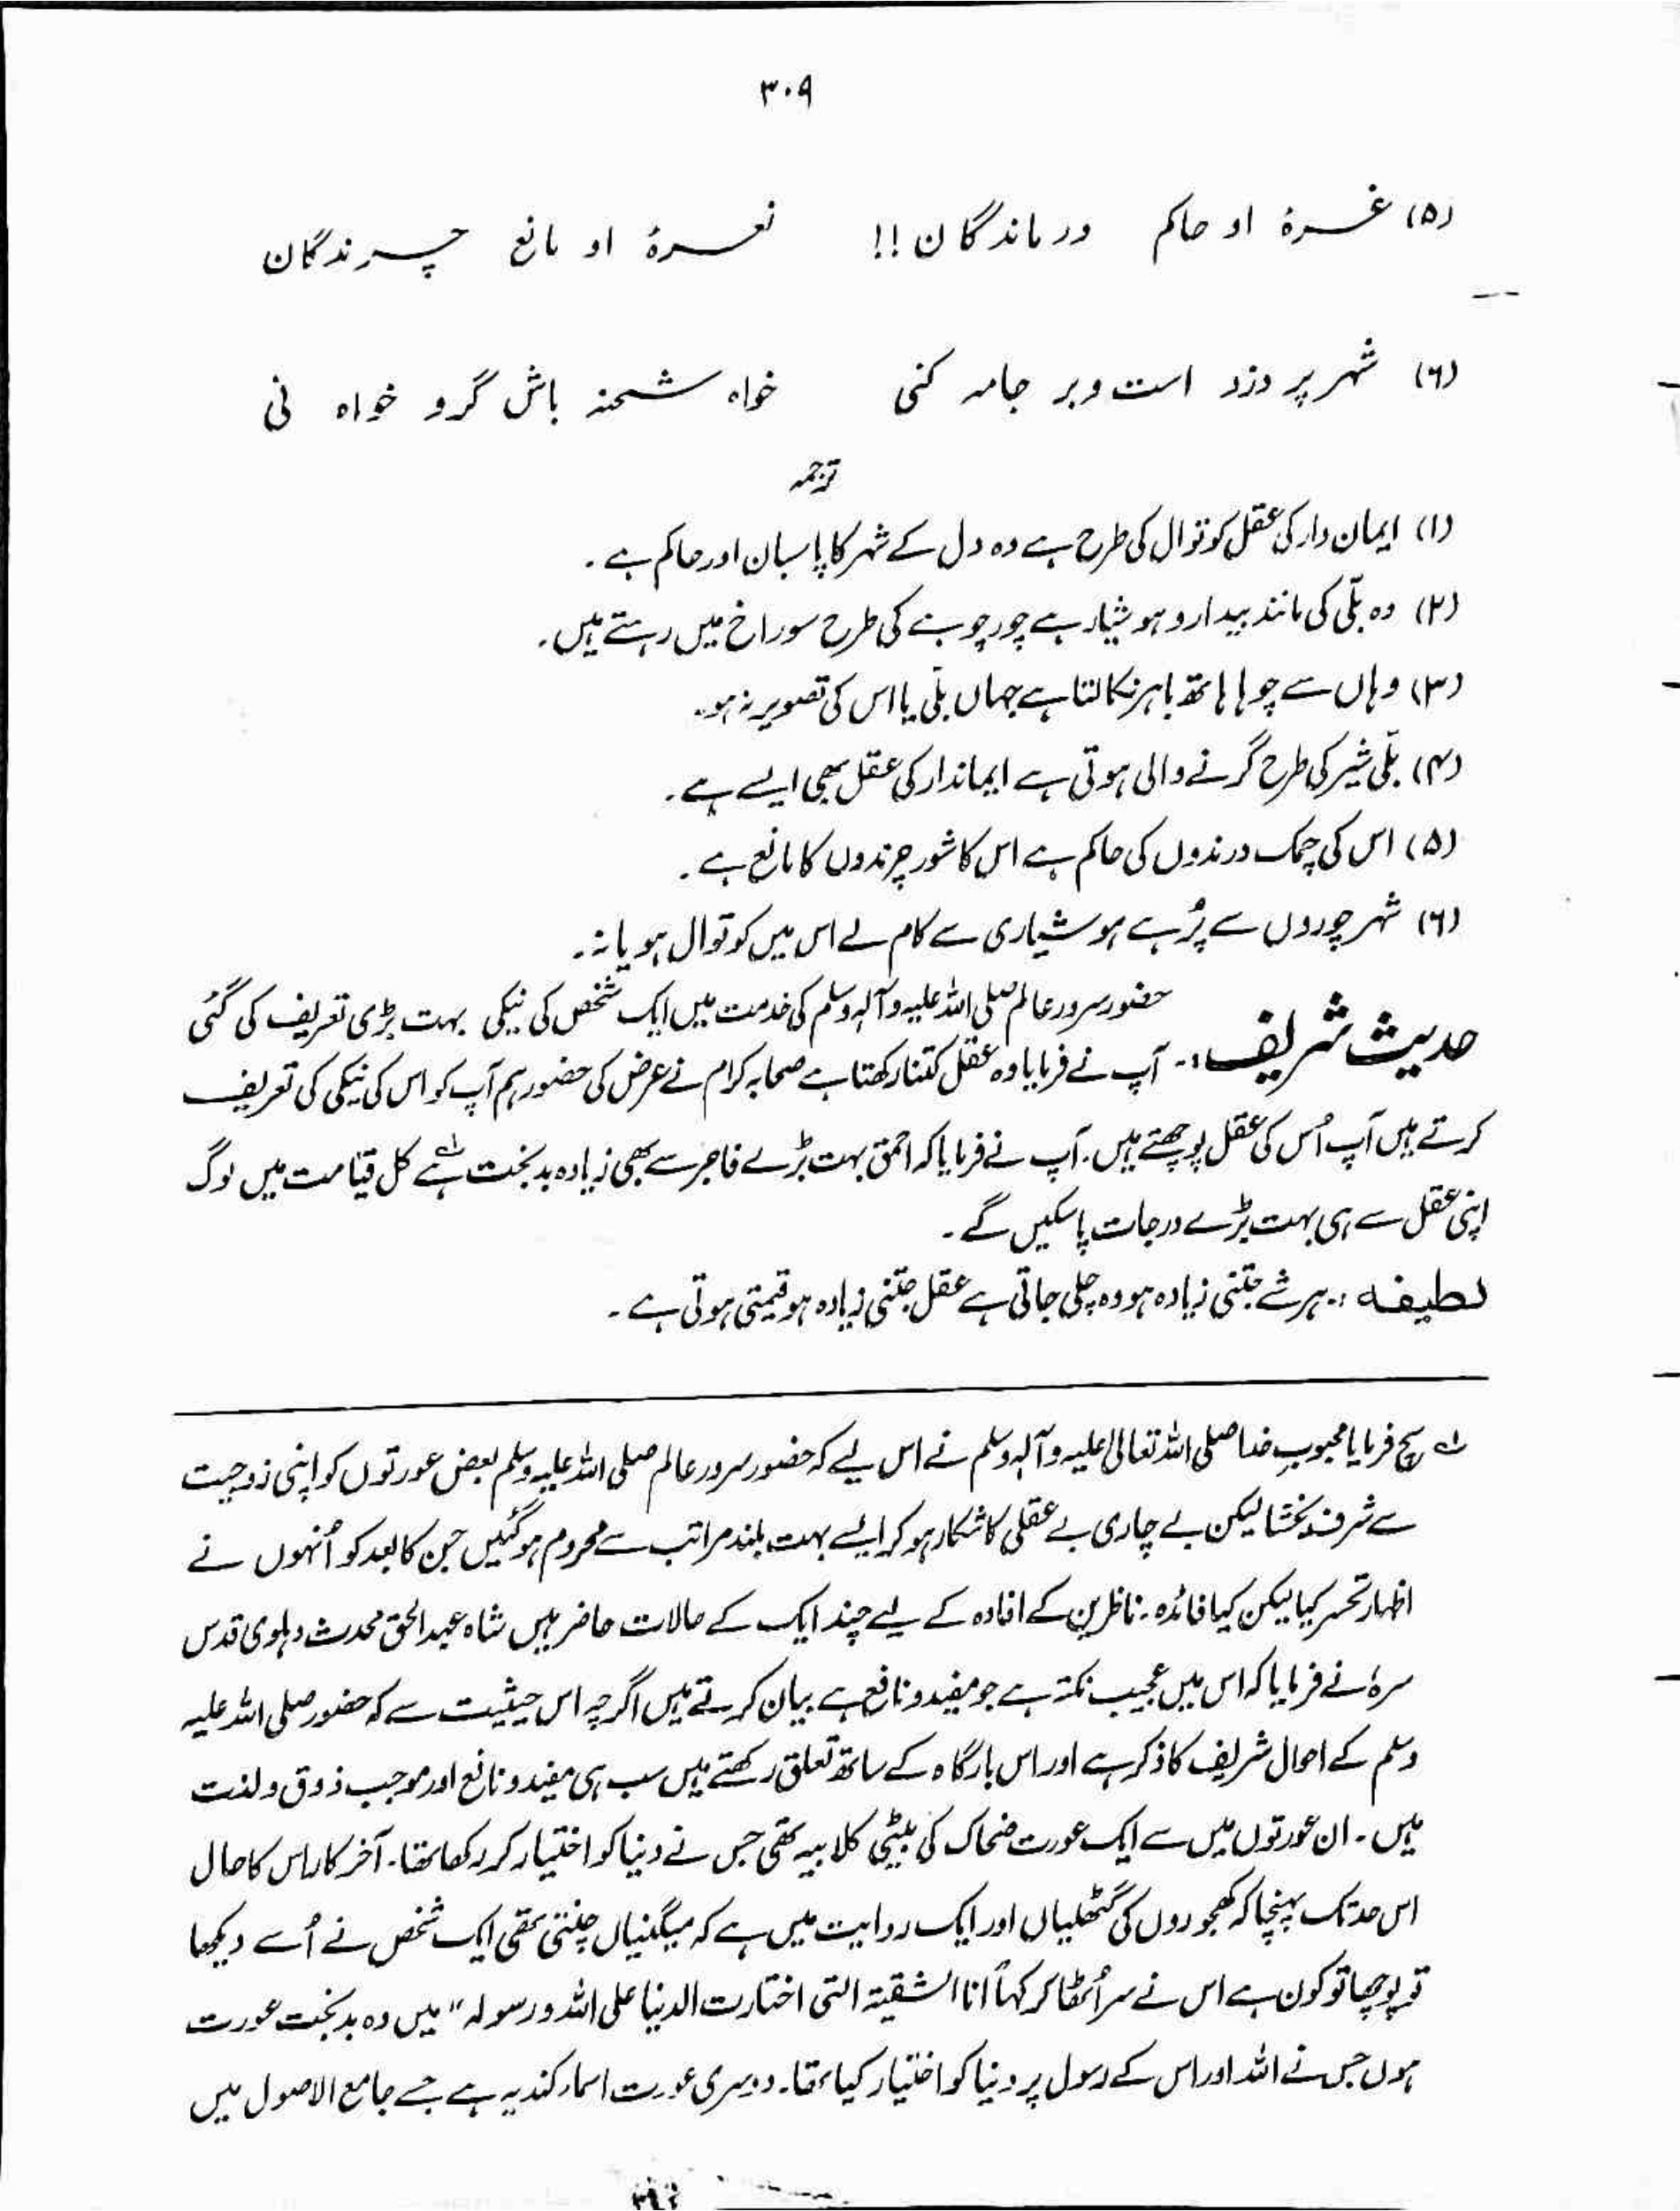 ۳۰۹
(۵) غرۂ او حاکم درماندگان!! نعرۂ او مانع چرندگان
(۶) شہر پر دزد است و بر جامہ کنی خواہ شحنہ باش گرو خواہ نی
ترجمہ
(۱) ایمان دار کی عقل کوتوال کی طرح ہے وہ دل کے شہر کا پاسبان اور حاکم ہے۔
(۲) وہ بلّی کی مانند بیدار و ہوشیار ہے چور چوہے کی طرح سوراخ میں رہتے ہیں۔
(۳) وہاں سے چوہا ہاتھ باہر نکالتا ہے جہاں بلّی یا اس کی تصویر نہ ہو۔
(۴) بلّی شیر کی طرح گرنے والی ہوتی ہے ایماندار کی عقل بھی ایسے ہے۔
(۵) اس کی چمک درندوں کی حاکم ہے اس کا شور چرندوں کا مانع ہے۔
(۶) شہر چوروں سے پُر ہے ہوشیاری سے کام لے اس میں کوتوال ہو یا نہ۔
حضور سرور عالم صلی اللہ علیہ وآلہ وسلم کی خدمت میں ایک شخص کی نیکی بہت بڑی تعریف کی گئی
حدیث شریف :- آپ نے فرمایا وہ عقل کتنا رکھتا ہے صحابہ کرام نے عرض کی حضور ہم آپ کو اس کی نیکی کی تعریف
کرتے ہیں آپ اُس کی عقل پوچھتے ہیں۔ آپ نے فرمایا کہ احمق بہت بڑے فاجر سے بھی زیادہ بدبخت ہے کل قیامت میں لوگ
اپنی عقل سے ہی بہت بڑے درجات پا سکیں گے۔
لطیفہ :- ہر شے جتنی زیادہ ہو وہ چلی جاتی ہے عقل جتنی زیادہ ہو قیمتی ہوتی ہے۔
لے سچ فرمایا محبوبِ خدا صلی اللہ تعالیٰ علیہ وآلہ وسلم نے اس لیے کہ حضور سرور عالم صلی اللہ علیہ وسلم بعض عورتوں کو اپنی زوجیت
سے شرف بخشا لیکن بے چاری بے عقلی کا شکار ہو کر ایسے بہت بلند مراتب سے محروم ہوگئیں جن کا بعد کو اُنہوں نے
اظہار تحسر کیا لیکن کیا فائدہ۔ ناظرین کے افادہ کے لیے چند ایک کے حالات حاضر ہیں شاہ عبد الحق محدث دہلوی قدس
سرہٗ نے فرمایا کہ اس میں عجیب نکتہ ہے جو مفید و نافع ہے بیان کرتے ہیں اگرچہ اس حیثیت سے کہ حضور صلی اللہ علیہ
وسلم کے احوال شریف کا ذکر ہے اور اس بارگاہ کے ساتھ تعلق رکھتے ہیں سب ہی مفید و نافع اور موجب ذوق و لذت
ہیں۔ ان عورتوں میں سے ایک عورت ضحاک کی بیٹی کلابیہ تھی جس نے دنیا کو اختیار کر رکھا تھا۔ آخر کار اس کا حال
اس حد تک پہنچا کہ کھجوروں کی گٹھلیاں اور ایک روایت میں ہے کہ مینگنیاں چنتی تھی ایک شخص نے اُسے دیکھا
تو پوچھا تو کون ہے اس نے سر اُٹھا کر کہا "انا الشقیۃ التی اختارت الدنیا علی اللہ و رسولہ" میں وہ بدبخت عورت
ہوں جس نے اللہ اور اس کے رسول پر دنیا کو اختیار کیا تھا۔ دوسری عورت اسماء کندیہ ہے جسے جامع الاصول میں